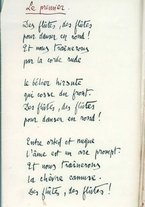 Le premier
Des flûtes, des flûtes
pour danser en rond !
Et nous traînerons
par la corde rude
le bélier hirsute
qui cosse du front.
Des flûtes, des flûtes
pour danser en rond !
Entre orbe et nuque
L'âme est un arc prompt.
Et nous traînerons
la chèvre camuse.
Des flûtes, des flûtes !